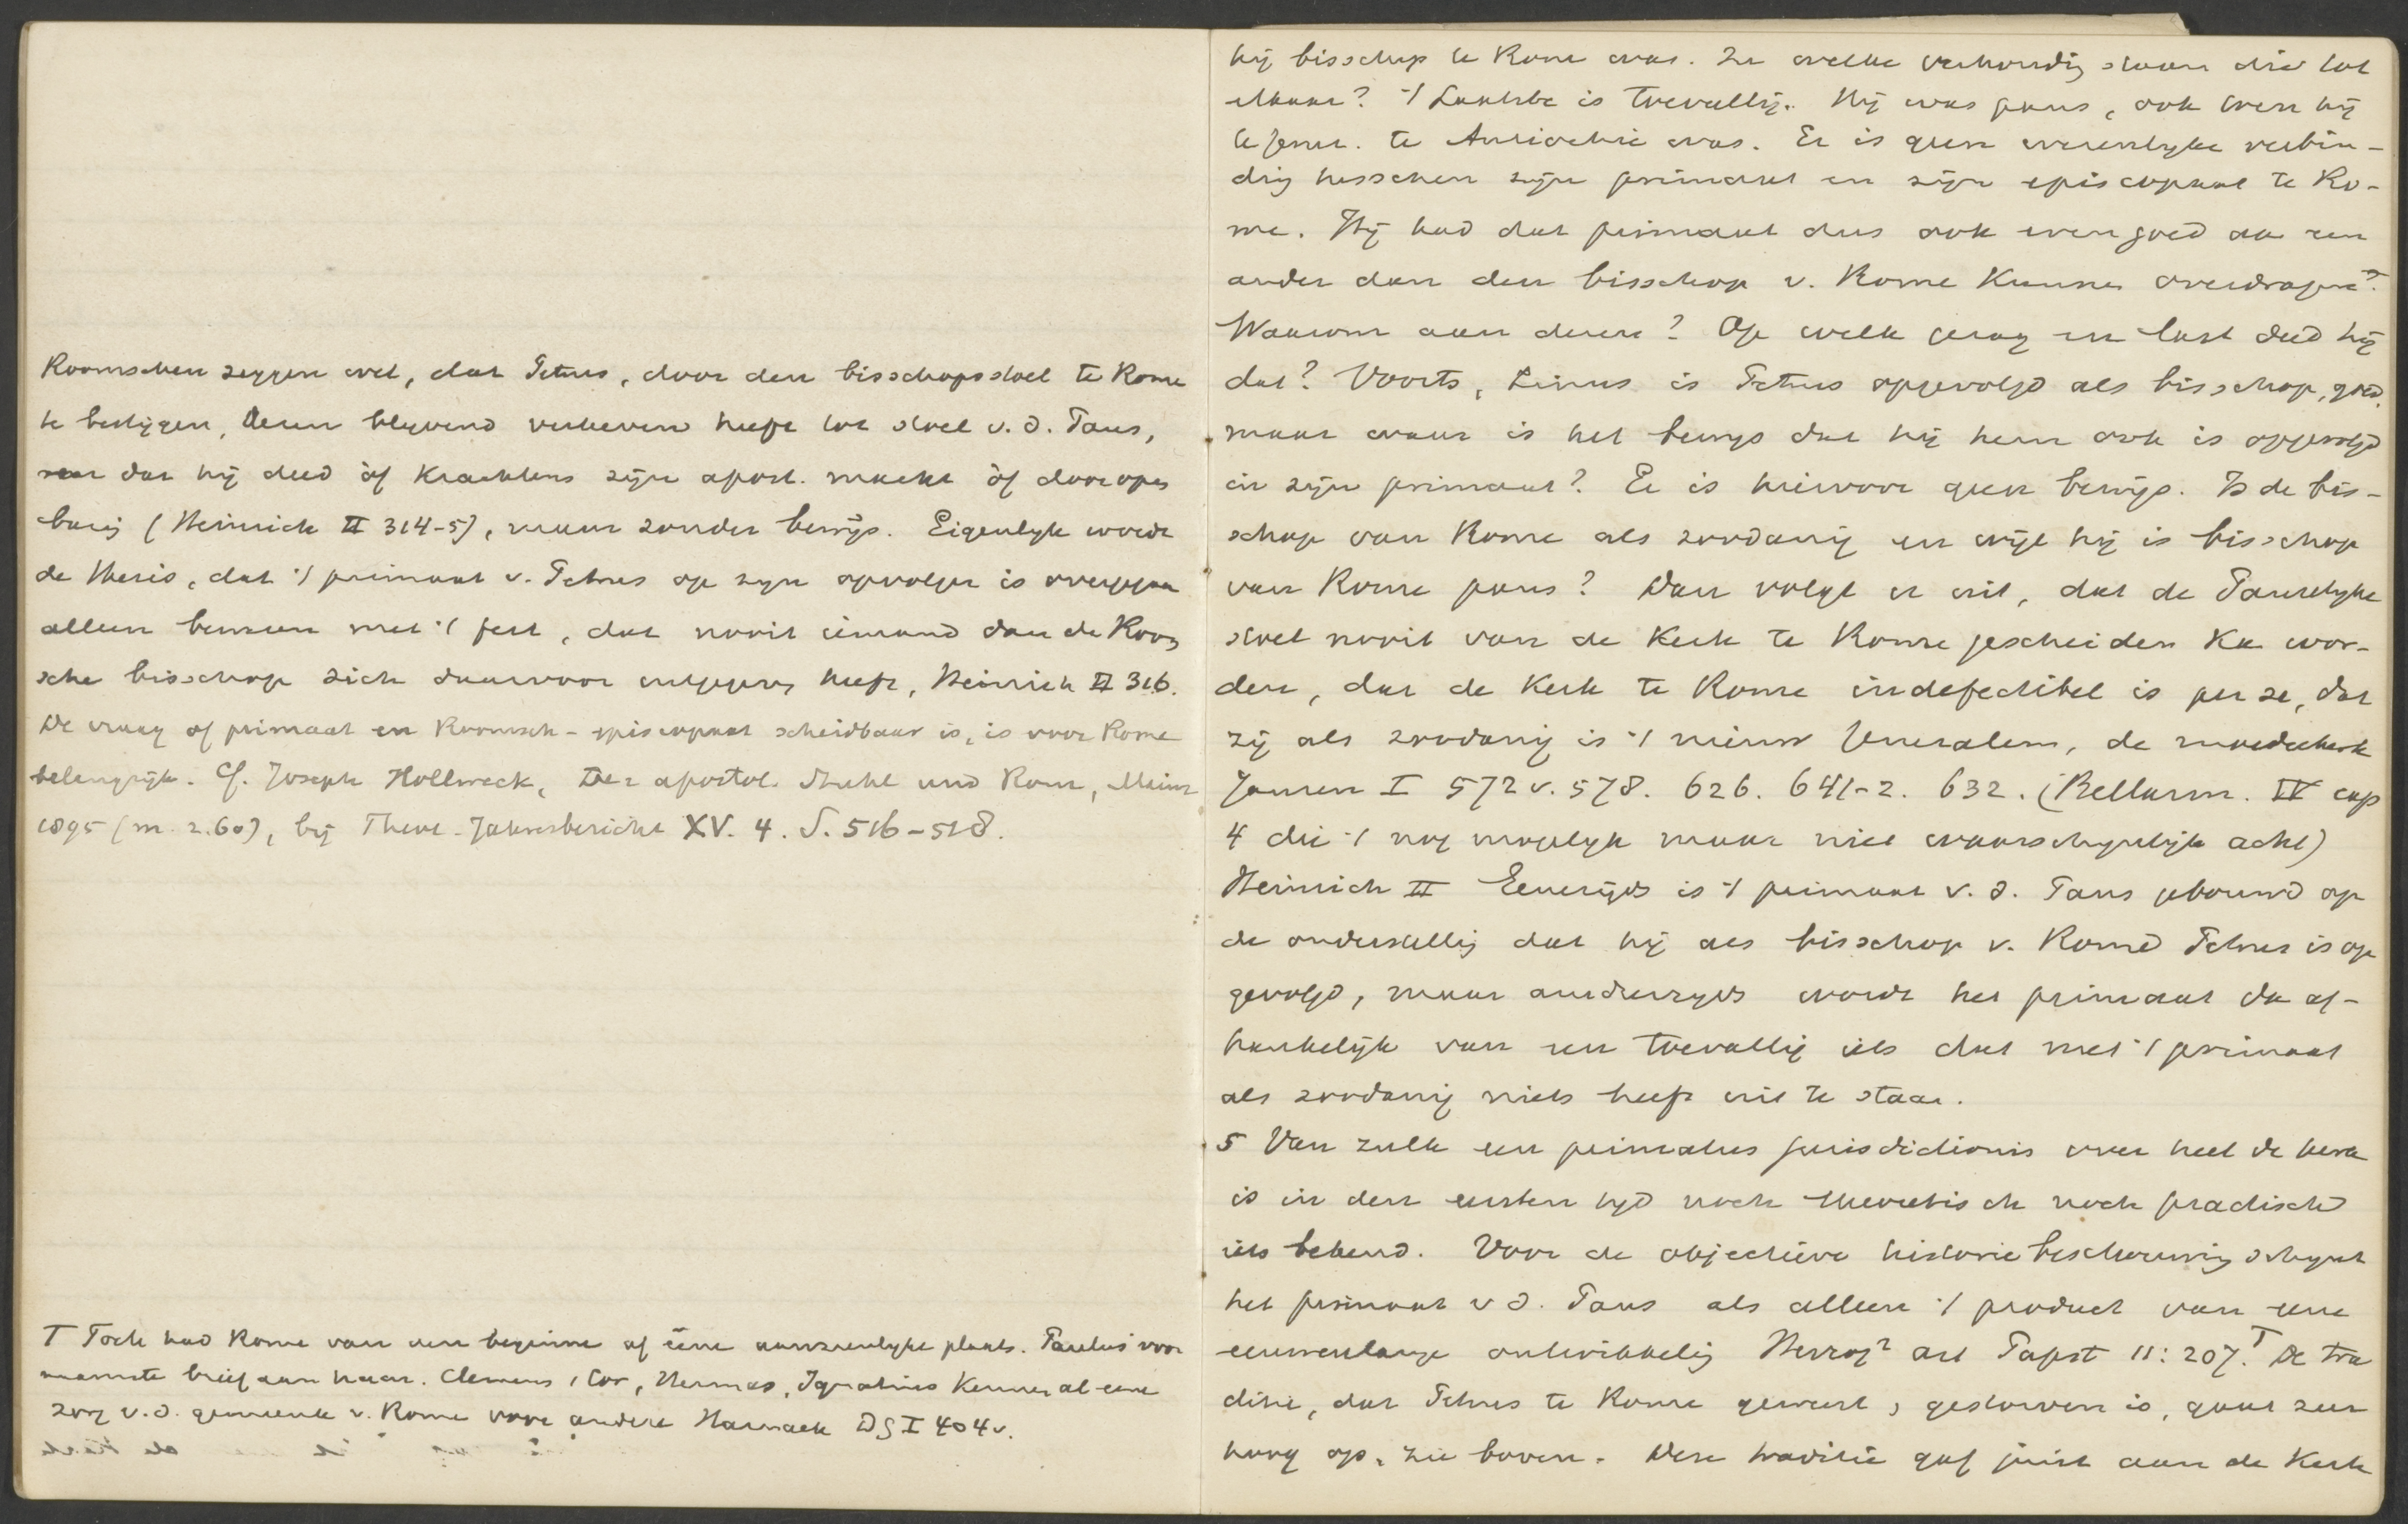 Roomschen zeggen wel, dat Petrus, door den bisschopsstoel te Rome
te bestijgen, dezen blyvend verheven heeft tot stoel v. d. Paus,
dat hij deed òf krachtens zijn apost. macht òf door open
barig (Heinrich II 314-5), maar zonder bewijs. Eigenlyk wordt
de thesis, dat 't primaat v. Petrus op zyn opvolger is overgegaan
alleen bewezen met 't feit, dat nooit iemand dan de Room
sche bisschop zich daarvoor uitgegeven heeft, Heinrich II 316.
De vraag of primaat en Roomsch-episcopaat scheidbaar is, is voor Rome
belangrijk. Cf. Joseph Hollweck, Der apostol. Stuhl und Rom, Mainz
1895 (m. 2.60), bij Theol. Jahresbericht XV. 4. S. 516-518.
T Toch had Rome van den beginne af eene aanzienlyke plaats. Paulus' voor
naamste brief aan haar. Clemens 1 Cor, Hermas, Ignatius kennen al eene
zorg v. d. gemeente v. Rome voor andere Harnack DG I 404v.
hij bisschop te Rome was. In welke verhoudig staan die tot
elkaar? 't Laatste is toevallig. Hij was paus, ook toen hij
te Jerus. te Antiochie was. Er is geen wezenlyke verbin-
dig tusschen zijn primaat en zijn episcopaat te Ro-
me. Hij had dat primaat dus ook even goed aan een
ander dan den bisschop v. Rome kunnen overdragen?
Waarom aan dezen? Op welk gezag en last deed hij
dat? Voorts, Linus is Petrus opgevolgd als bisschop, goed,
maar waar is het bewys dat hij hem ook is opgevolgd
in zijn primaat? Er is hiervoor geen bewijs. Is de bis-
schop van Rome als zoodanig en wijl hij is bisschop
van Rome paus? Dan volgt er uit, dat de Pauselyke
stoel nooit van de Kerk te Rome gescheiden kan wor-
den, dat de Kerk te Rome indefectibel is per se, dat
zij als zoodanig is 't nieuw Jeruzalem, de moederkerk
Jansen I 572 v. 578. 626. 641-2. 632. (Bellarm. IV cap
4 die 't nog mogelyk maar niet waarschynlijk acht)
Heinrich II Eenerzijds is 't primaat v. d. Paus gebouwd op
de onderstellig dat hij als bisschop v. Rome Petrus is op
gevolgd, maar anderzyds wordt het primaat dan af-
hankelijk van een toevallig iets dat met 't primaat
als zoodanig niets heeft uit te staan.
5 Van zulk een primatus jurisdictionis over heel de kerk
is in den eersten tyd noch theoretisch noch practisch
iets bekend. Voor de objectieve historiebeschouwing schynt
het primaat v d. Paus als alleen 't product van eene
eeuwenlange ontwikkelig Herzog² art Papst 11: 207. T De tra
ditie, dat Petrus te Rome geweest, gestorven is, gaat zeer
hoog op, zie boven. Deze traditie gaf juist aan de Kerk